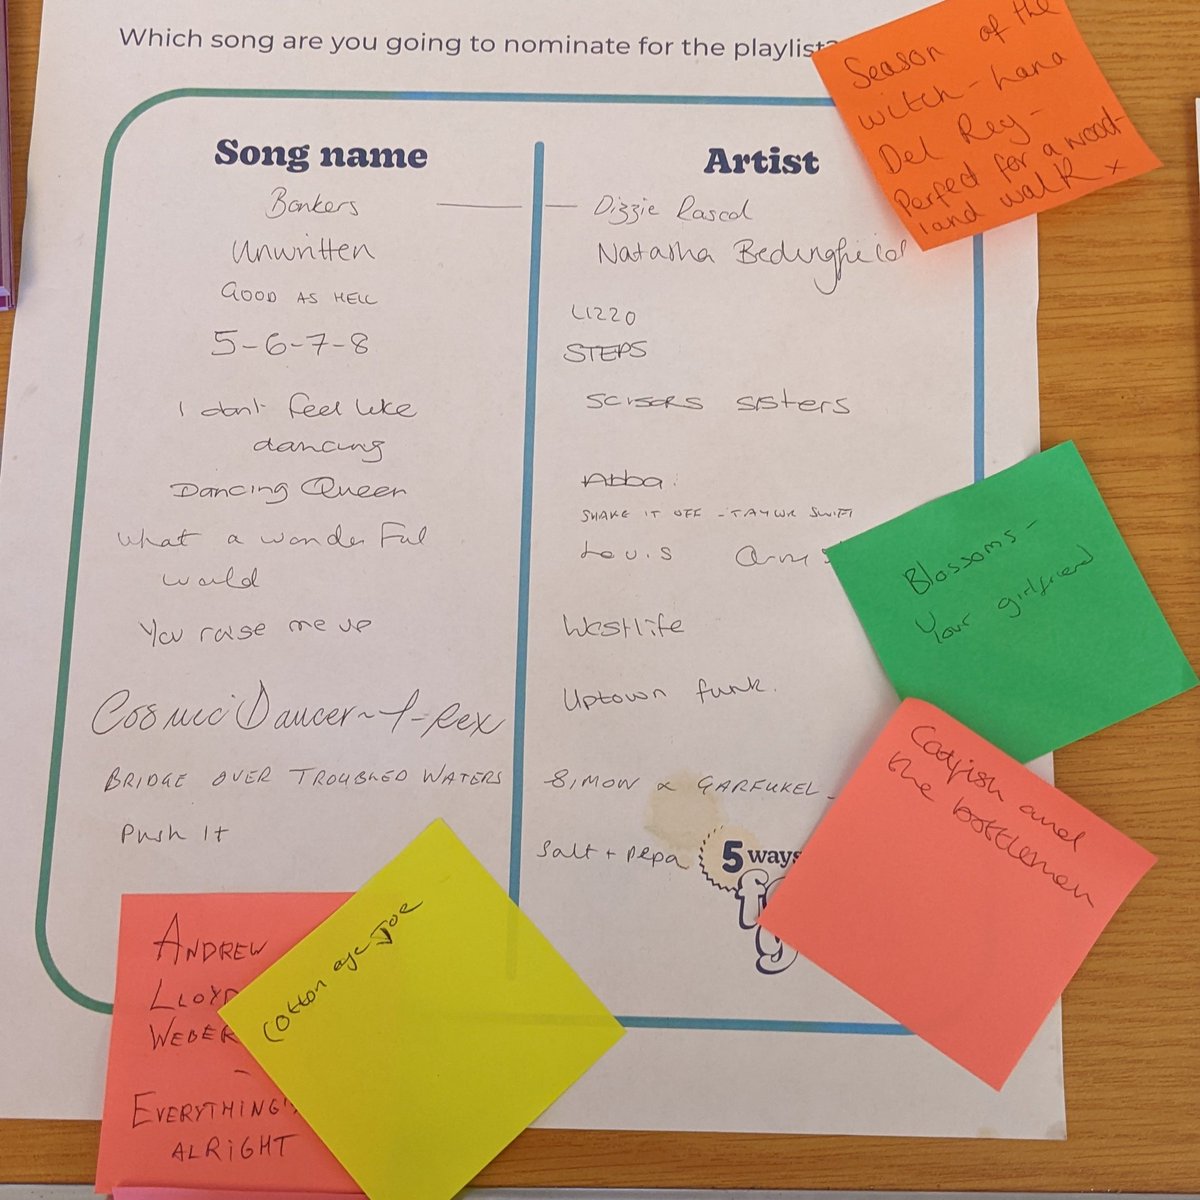 Which song are you going to nominate for the playlist?
Song name
Artist
Bonkers — Dizzie Rascal
Unwritten Natasha Bedingfield
GOOD AS HELL LIZZO
5-6-7-8 STEPS
I don't feel like
dancing
scissors sisters
Dancing Queen Abba.
SHAKE IT OFF - TAYLOR SWIFT
what a wonderful
world
Louis
You raise me up Westlife
Uptown funk.
Cosmic Dancer ~ T-Rex
BRIDGE OVER TROUBLED WATERS SIMON & GARFUKEL -
Push It Salt + pepa
5 ways
Season of the
witch - Lana
Del Rey -
Perfect for a wood-
land walk x
Blossoms -
Your girlfriend
Catfish and
the bottlemen
ANDREW
LLOYD
WEBER
-
EVERYTHING'S
ALRIGHT
Cotton eye Joe